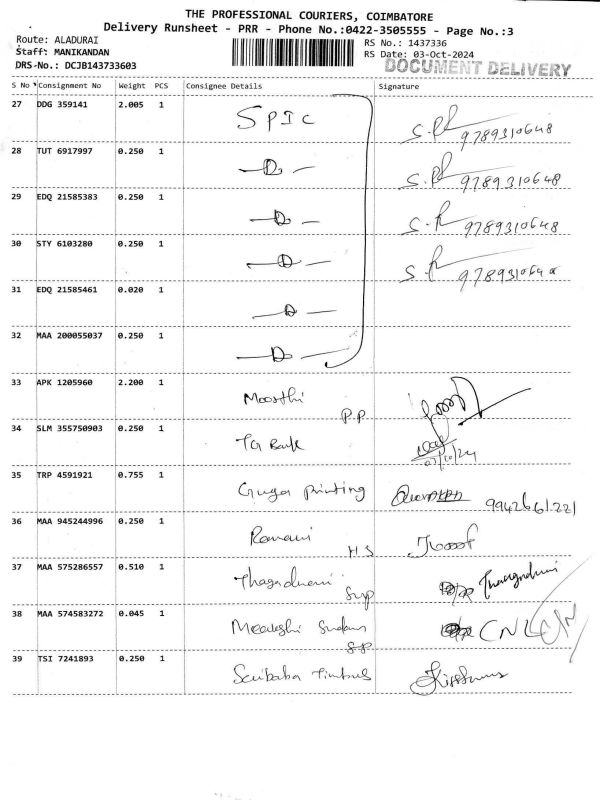 THE PROFESSIONAL COURIERS, COIMBATORE
Delivery Runsheet - PRR - Phone No.:0422-3505555 - Page No.:3
Route: ALADURAI
Staff: MANIKANDAN
DRS-No.: DCJB143733603
RS No.: 1437336
RS Date: 03-Oct-2024
DOCUMENT DELIVERY
S No Consignment No Weight PCS Consignee Details Signature
27 DDG 359141 2.005 1 SPIC 9789310648
28 TUT 6917997 0.250 1 -D- 9789310648
29 EDQ 21585383 0.250 1 -D- 9789310648
30 STY 6103280 0.250 1 -D-
31 EDQ 21585461 0.020 1 -D-
32 MAA 200055037 0.250 1 -D-
33 APK 1205960 2.200 1 Moorthi P.P
34 SLM 355750903 0.250 1 TG Bank
35 TRP 4591921 0.755 1 Guga Printing
36 MAA 945244996 0.250 1 Ramani H S
37 MAA 575286557 0.510 1
38 MAA 574583272 0.045 1 CNL
39 TSI 7241893 0.250 1 Saibaba